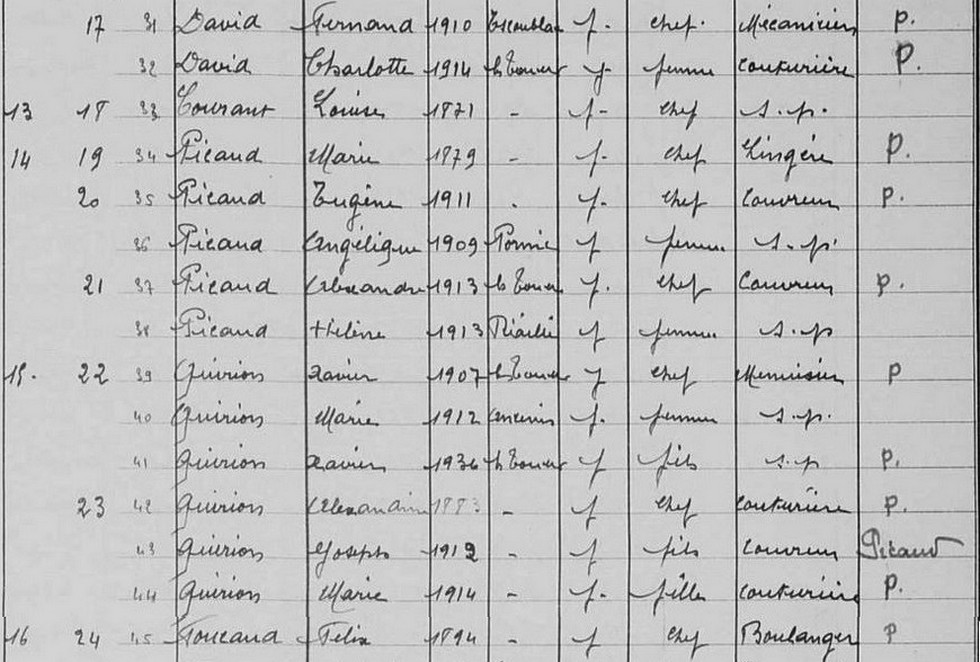 17 31 David Fernand 1910 Escoublac f. chef. Mécanicien p.
32 David Charlotte 1914 f femme couturière P.
13 18 33 Courant Louise 1871 - f- chef s.p.
14 19 34 Picaud Marie 1879 - f. chef Lingère P.
20 35 Picaud Eugène 1911 . f. chef Couvreur p.
36 Picaud Angélique 1909 Pornic f femme s.p.
21 37 Picaud Alexandre 1913 f. chef Couvreur p.
38 Picaud Hélène 1913 f femme s.p
15. 22 39 Guirion Xavier 1907 f chef Menuisier P
40 Guirion Marie 1912 Ancenis f. femme s.p.
41 Guirion Xavier 1936 f fils s.p P.
23 42 Guirion Alexandrine 1883 - f chef couturière p.
43 Guirion Joseph 1912 - f fils Couvreur Picaud
44 Guirion Marie 1914 - f. fille couturière P.
16 24 45 Foucaud Félix 1894 - f chef Boulanger P